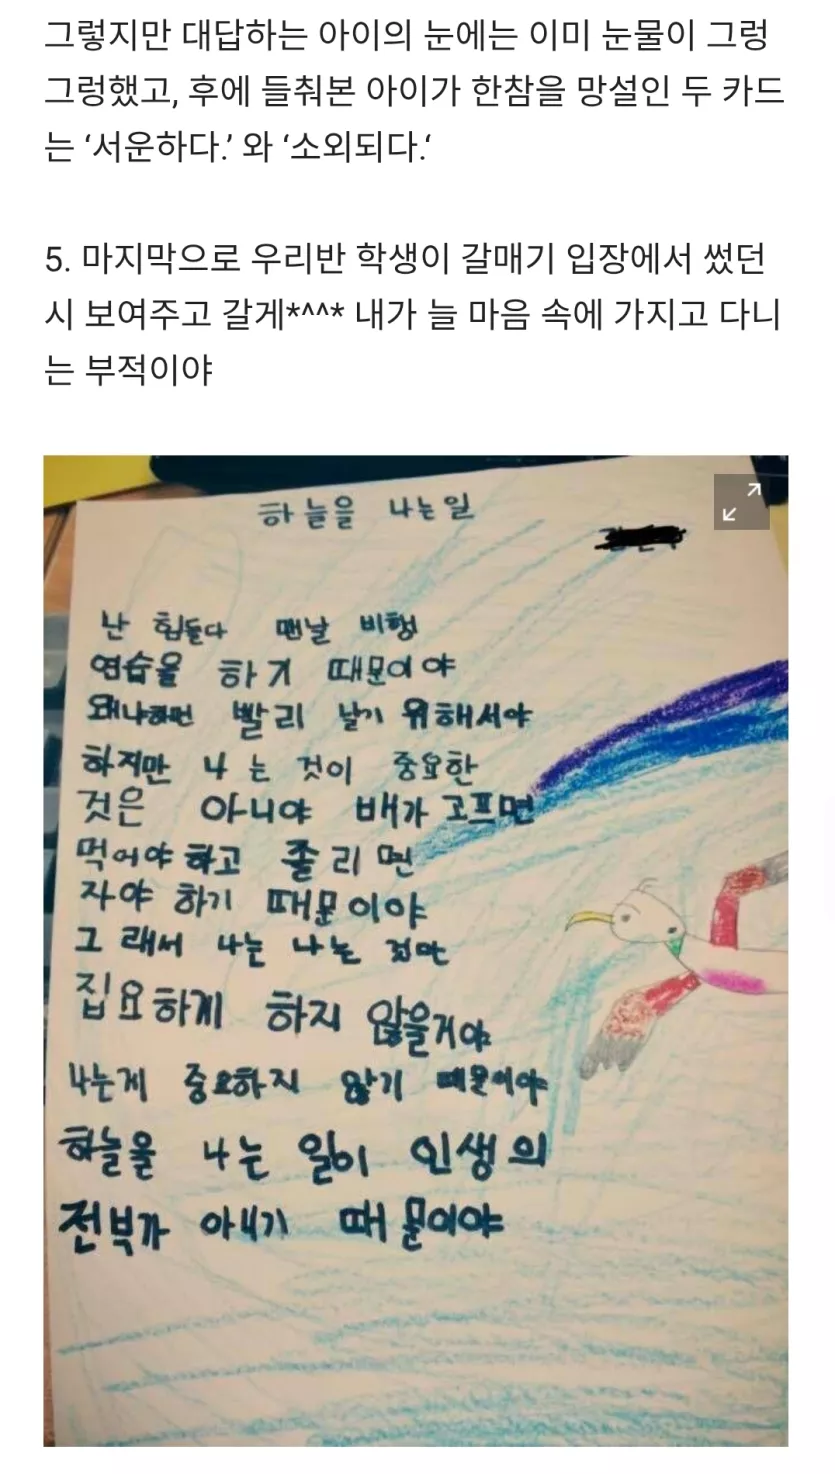 그렇지만 대답하는 아이의 눈에는 이미 눈물이 그렁
그렁했고, 후에 들춰본 아이가 한참을 망설인 두 카드
는 ‘서운하다.’ 와 ‘소외되다.‘
5. 마지막으로 우리반 학생이 갈매기 입장에서 썼던
시 보여주고 갈게*^^* 내가 늘 마음 속에 가지고 다니
는 부적이야
하늘을 나는일
난 힘들다 맨날 비행
연습을 하기 때문이야
왜냐하면 빨리 날기 위해서야
하지만 나는 것이 중요한
것은 아니야 배가 고프면
먹어야하고 졸리면
자야 하기 때문이야
그래서 나는 나는 것만
집요하게 하지 않을거야
나는게 중요하지 않기 때문이야
하늘을 나는 일이 인생의
전부가 아니기 때문이야